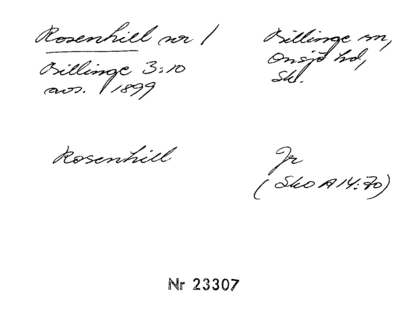 Rosenhill nr 1
Billinge 3:10
avs. 1899
Billinge sn,
Onsjö hd,
Sk.
Rosenhill
Jr
(Sko A 14:70)
Nr 23307